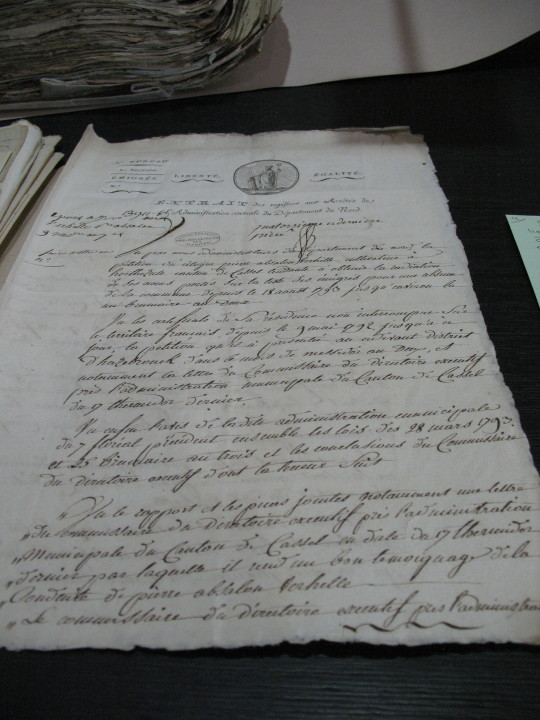 BUREAU
ÉMIGRÉS
LIBERTÉ
ÉGALITÉ
EXTRAIT des registres aux Arrêtés de
l'Administration centrale du Département du Nord
Vu par nous administrateurs du Département du nord la
pétition du citoyen pierre absalon Verhille cultivateur à
canton de Cassel tendante à obtenir la radiation
de son nom portés sur la liste des émigrés pour son absence
de la commune depuis le 18 août 1793 jusqu'au
Vu les certificats de la résidence non interrompue sur
le territoire français depuis le 9 mai 1792 jusqu'à ce
jour, la pétition qu'il a présentée au district
d'hazebrouck dans le mois de messidor an
notamment la lettre du Commissaire du directoire executif
près l'administration municipale du Canton de Cassel
du 17 thermidor dernier
Vu enfin l'avis de la dite administration municipale
du 7 floréal ensemble les lois des 28 mars 1793
et 25 brumaire an trois et les conclusions du Commissaire
du directoire executif dont la teneur suit
" Vu le rapport et les pièces jointes notamment une lettre
" du commissaire du directoire executif près l'administration
" Municipale du Canton de Cassel en date du 17 thermidor
" dernier par laquelle il rend un bon temoignage de la
" Conduite de pierre absalon Verhille
" Le commissaire du directoire executif près l'administration